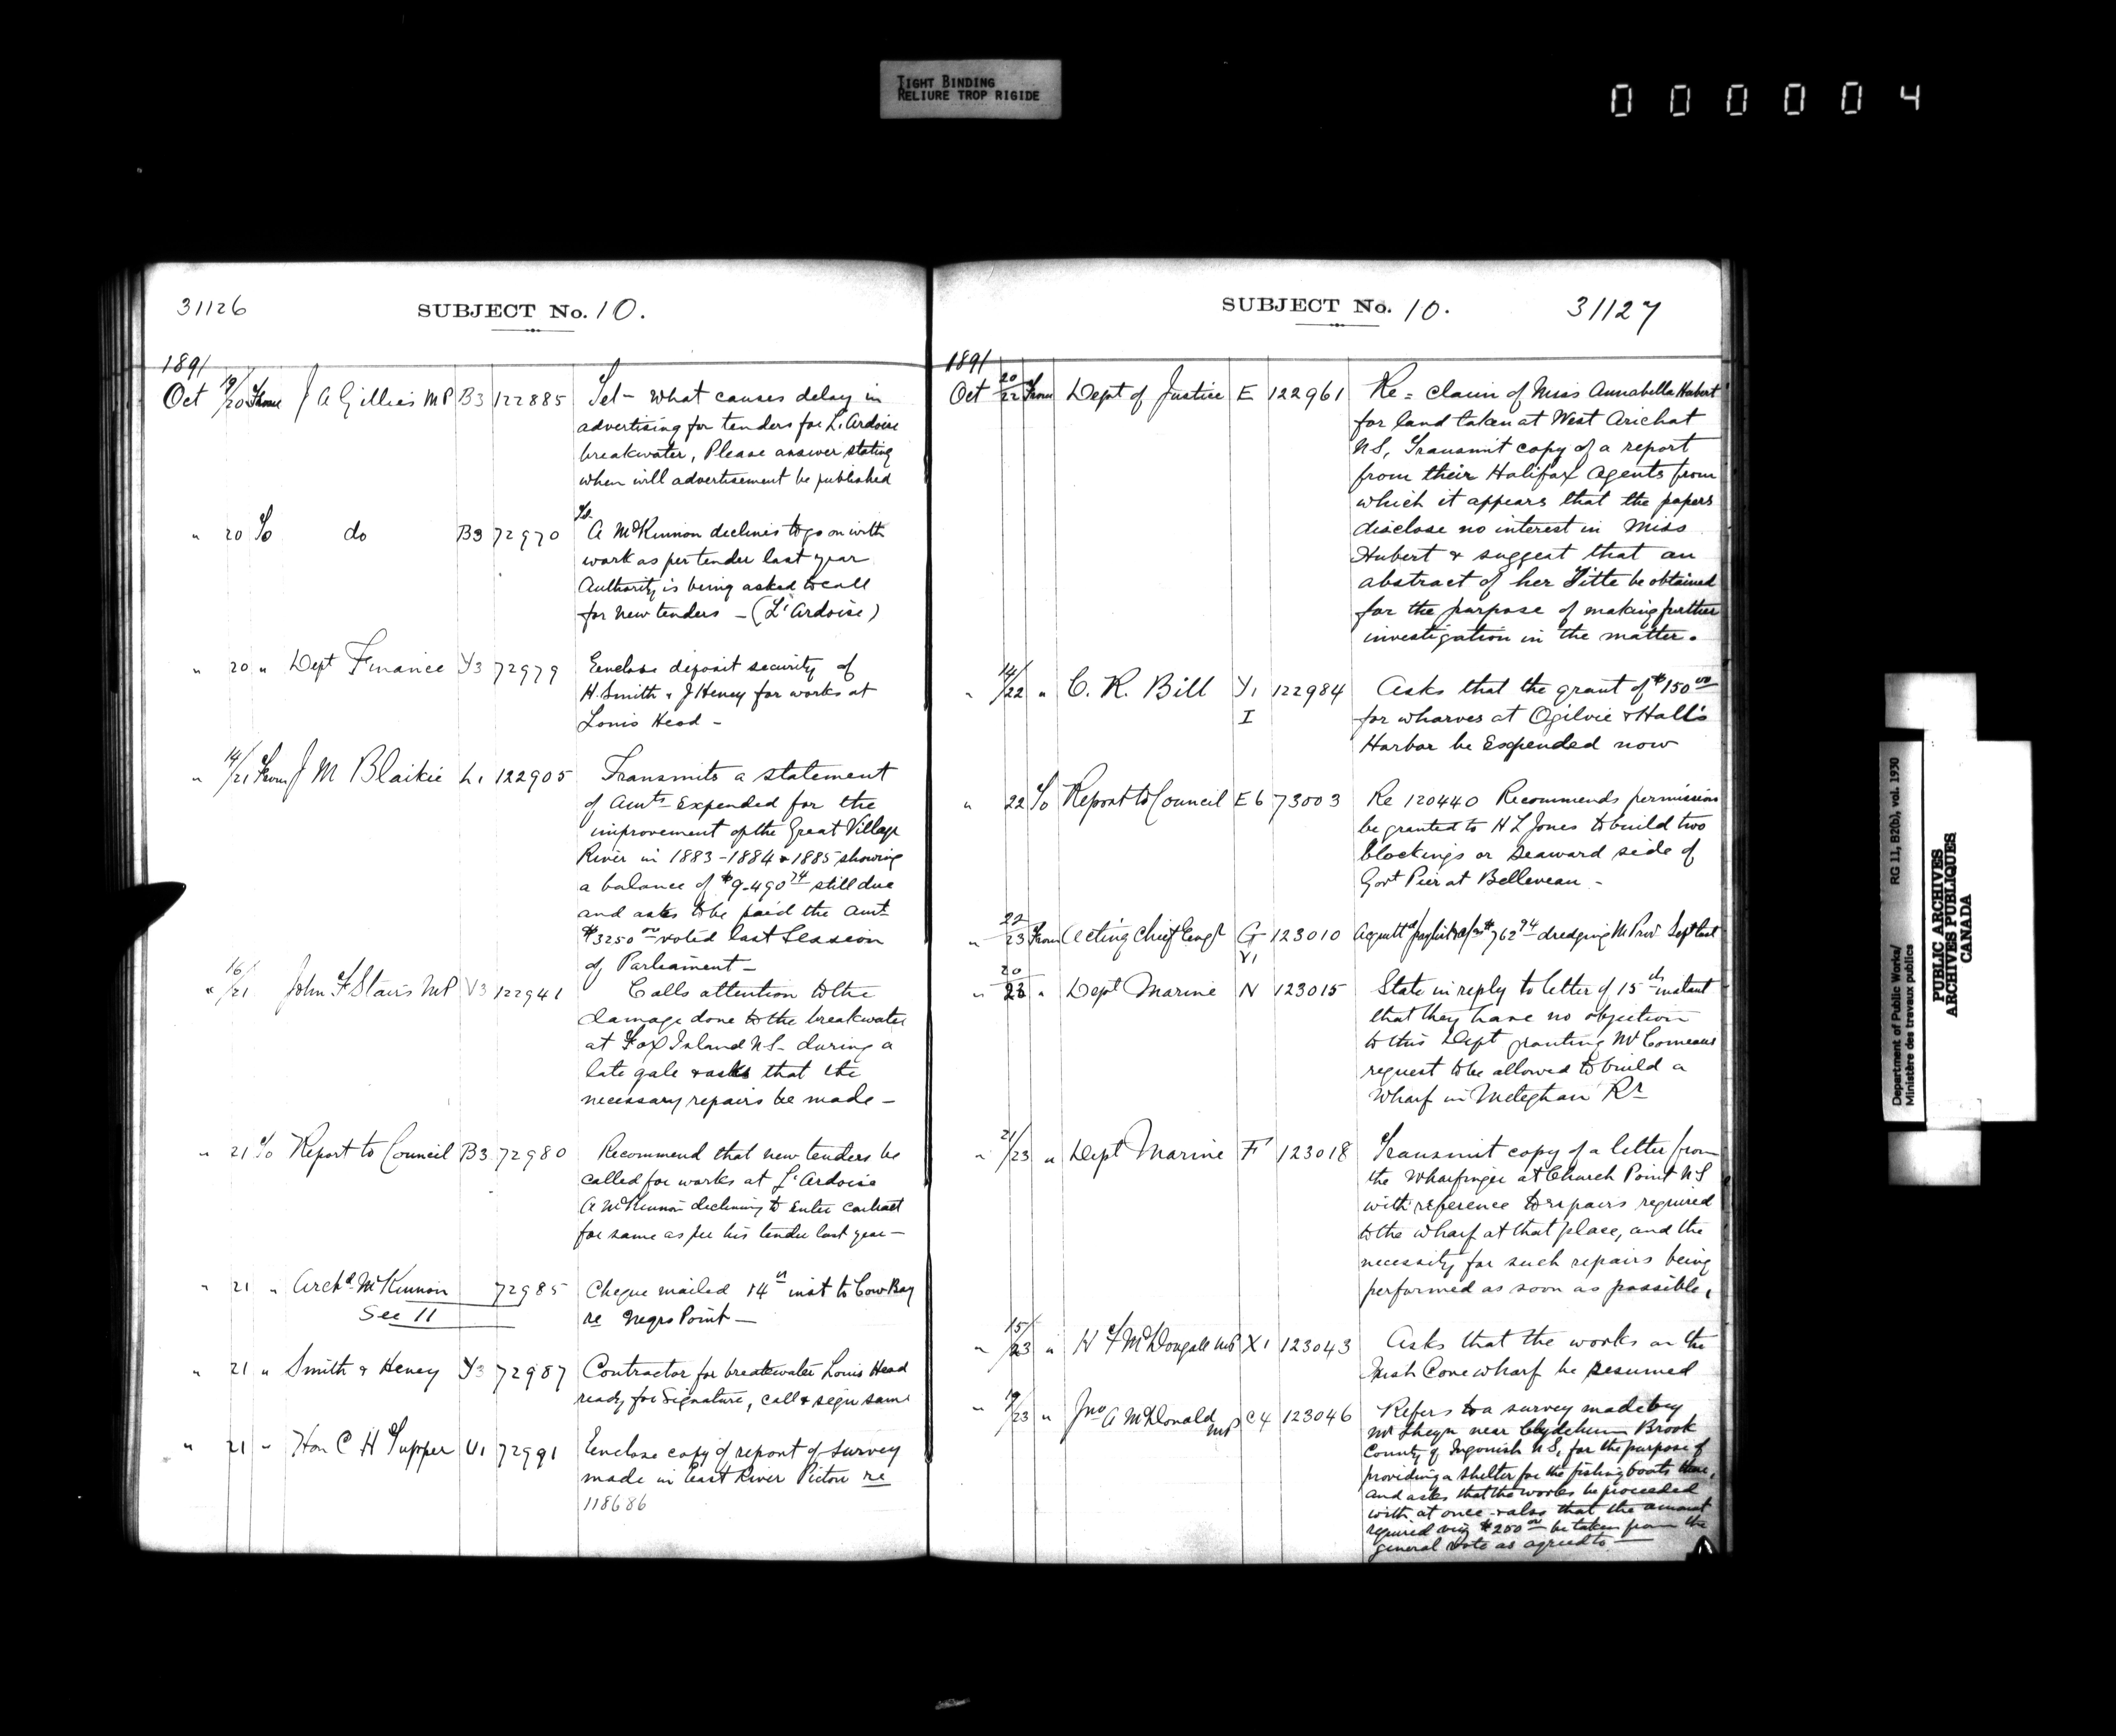 TIGHT BINDING
RELIURE TROP RIGIDE
000004
31126
SUBJECT No. 10.
1891
Oct 19/20 From J A Gillies MP B3 122885 Tel - What causes delay in
advertising for tenders for L'Ardoise
breakwater, Please answer stating
when will advertisement be published
" 20 To do B3 72970 Tel- A McKinnon declines to go on with
work as per tender last year
Authority is being asked to call
for new tenders - (L'Ardoise)
" 20 " Dept Finance Y3 72979 Enclose deposit security of
H. Smith & J Heney for works at
Louis Head -
" 14/21 From J M Blaikie L1 122905 Transmits a statement
of Amts Expended for the
improvement of the Great Village
River in 1883-1884 & 1885 showing
a balance of $9-490 74 still due
and asks to be paid the Amt
$3250 00 voted last Session
of Parliament -
" 16/21 John F Stairs MP V3 122941 Calls attention to the
damage done to the breakwater
at Fox Island NS - during a
late gale & asks that the
necessary repairs be made -
" 21 To Report to Council B3 72980 Recommend that new tenders be
called for works at L'Ardoise
A McKinnon declining to enter contract
for same as per his tender last year -
" 21 " Archd McKinnon 72985 Cheque mailed 14th inst to Cow Bay
See 11 re Negro Point -
" 21 " Smith & Heney Y3 72987 Contractor for breakwater Louis Head
ready for Signature, call & sign same
" 21 " Hon C H Tupper U1 72991 Enclose copy of report of survey
made in East River Pictou re
118686
SUBJECT No. 10.
31127
1891
Oct 20/22 From Dept of Justice E 122961 Re = claim of Miss Annabella Hubert
for land taken at West Arichat
NS, Transmit copy of a report
from their Halifax Agents from
which it appears that the papers
disclose no interest in Miss
Hubert & suggest that an
abstract of her Title be obtained
for the purpose of making further
investigation in the matter.
" 14/22 " C. R. Bill Y1 122984 Asks that the grant of $150 00
I for wharves at Ogilvie & Hall's
Harbor be Expended now
" 22 To Report to Council E6 73003 Re 120440 Recommends permission
be granted to H L Jones to build two
blockings on seaward side of
Govt Pier at Belleveau -
" 22/23 From Acting Chief Engr G 123010 $762 94 dredging Sept last
Y1
" 20/23 " Dept Marine N 123015 State in reply to letter of 15th instant
that they have no objection
to this Dept granting Mr Comeaus
request to be allowed to build a
Wharf in Meteghan Rr
" 21/23 " Dept Marine F 123018 Transmit copy of a letter from
the Wharfinger at Church Point NS
with reference to repairs required
to the wharf at that place, and the
necessity for such repairs being
performed as soon as possible,
" 15/23 " H F McDougall MP X1 123043 Asks that the works on the
Irish Cove wharf be resumed
" 19/23 " Jno A McDonald MP C4 123046 Refers to a survey made by
Mr near Brook
County of Ingonish N S, for the purpose of
providing a shelter for the fishing boats there,
and asks that the works be proceeded
with at once & also that the amount
required viz $200 00 be taken from the
general vote as agreed to
Department of Public Works/
Ministère des travaux publics
RG 11, B2(b), vol. 1930
PUBLIC ARCHIVES
ARCHIVES PUBLIQUES
CANADA